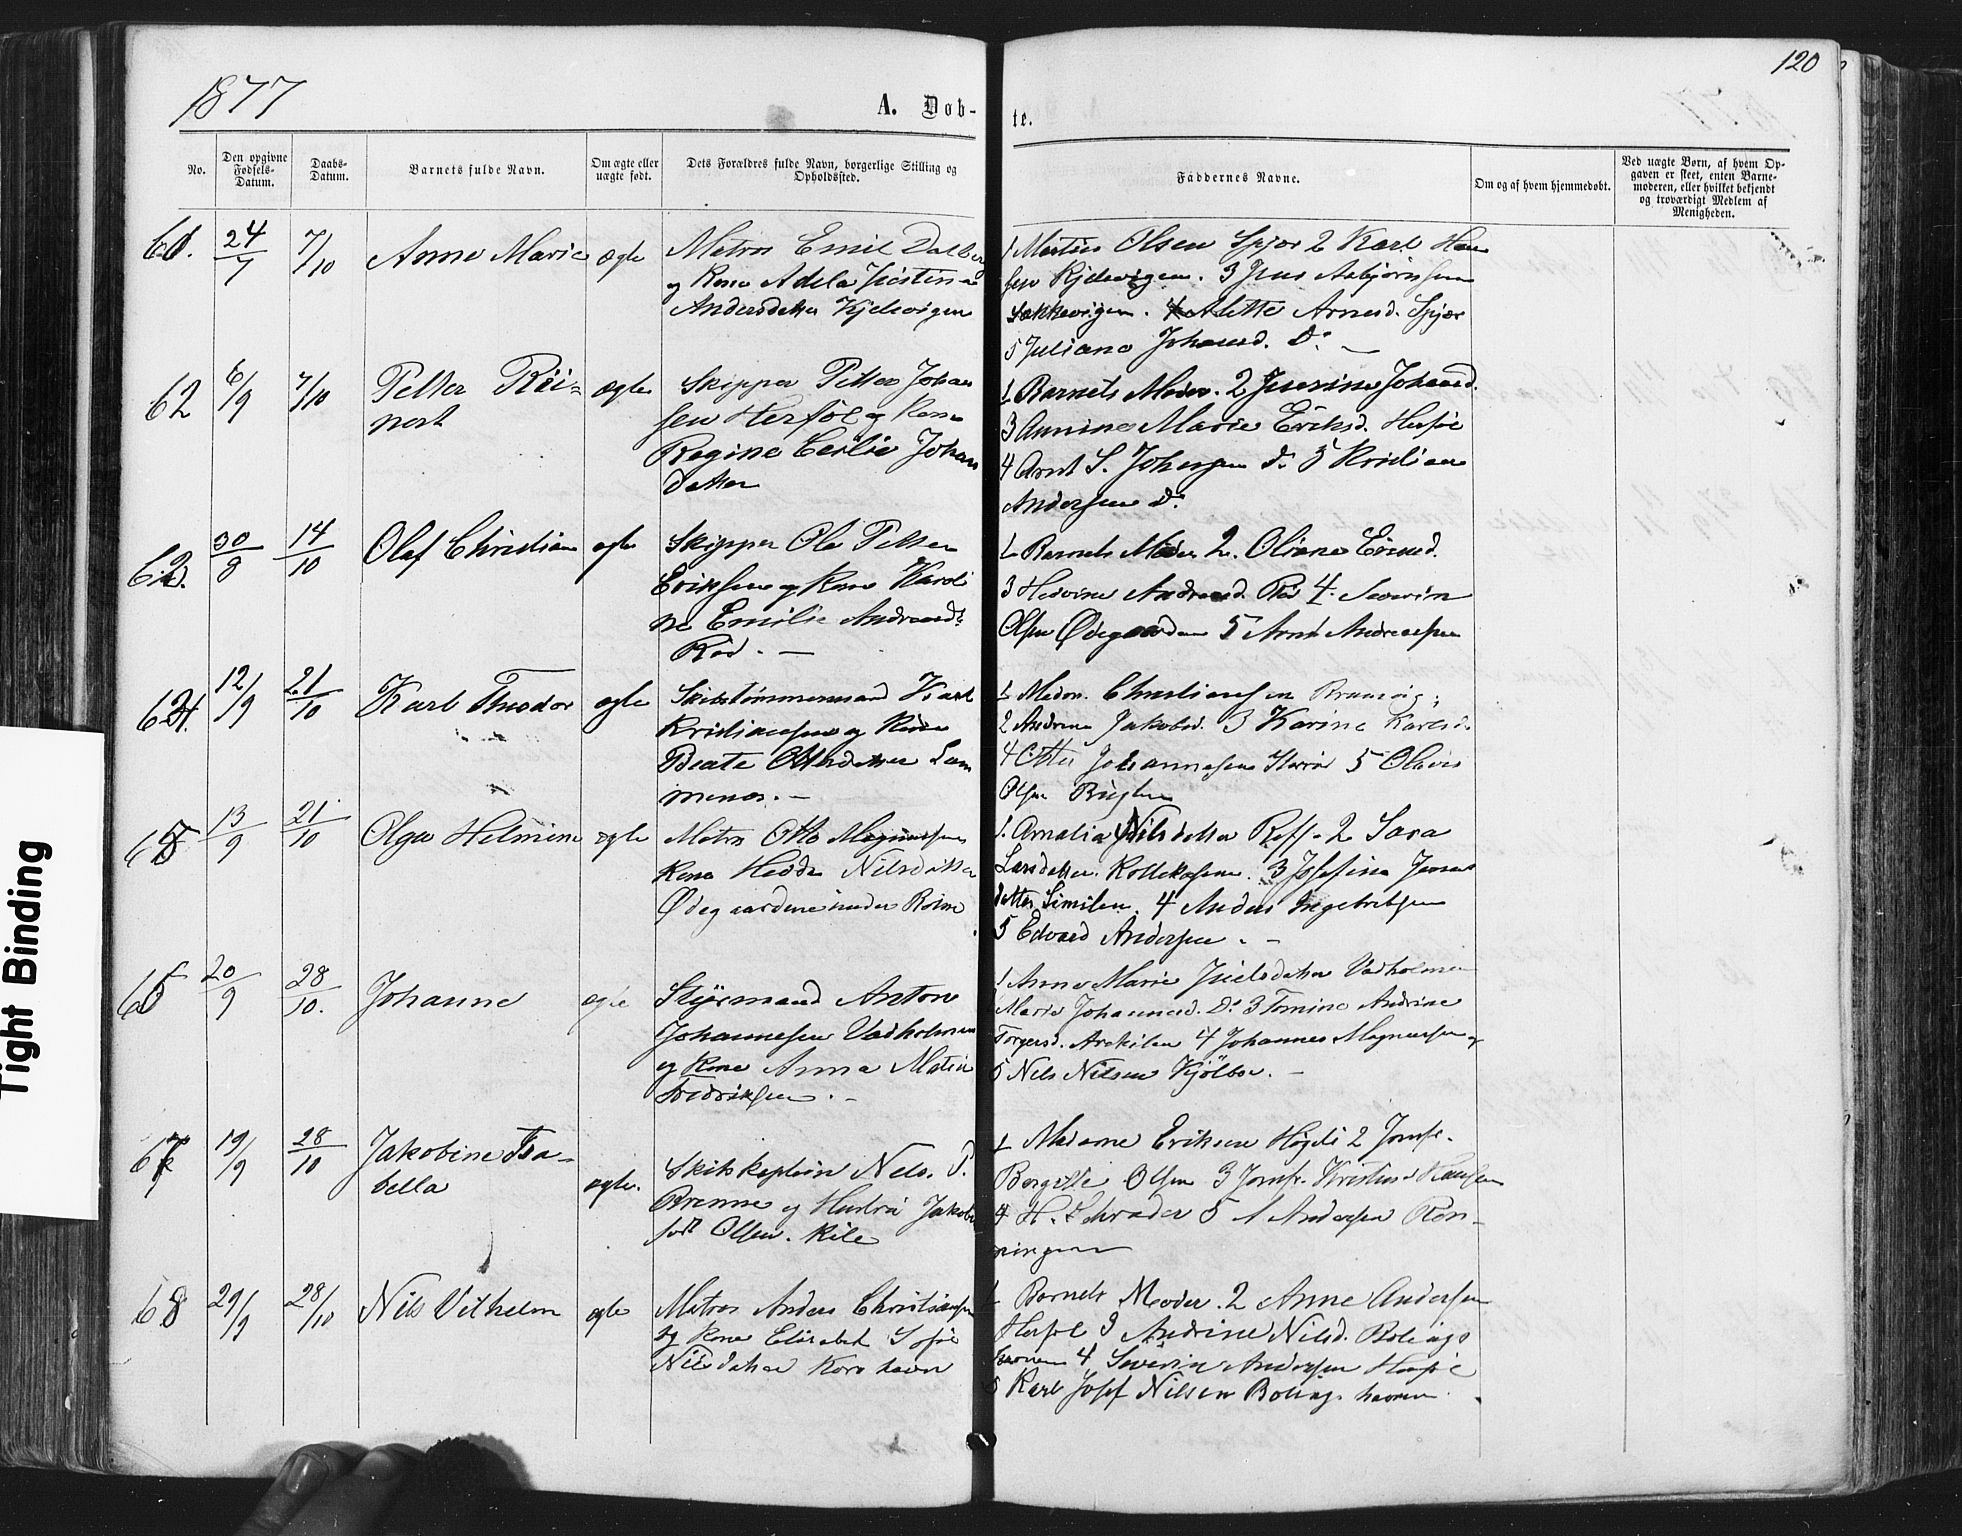 120
1877
A. Døb-
te.
No.
Den opgivne Fødsels-Datum.
Daabs-Datum.
Barnets fulde Navn.
Om ægte eller uægte født.
Dets Forældres fulde Navn, borgerlige Stilling og Opholdssted.
Faddernes Navne.
Om og af hvem hjemmedøbt.
Ved uægte Børn, af hvem Opgaven er skeet, enten Barnemoderen, eller hvilket bekjendt og troværdigt Medlem af Menigheden.
61. 24/7 7/10 Anne Marie ægte
Matros Emil Dalberg
og Kone Adela
Andersdatter Kjelvigen
1 Martin Olsen Spjær 2 Karl Han
sen Kjelvigen. 3 Jens Asbjørnsen
4 Alette Arnesd. Spjær
5 Juliane Johansd. D:
62 6/9 7/10 Petter Rei=
nert
ægte
Skipper Petter Johan
sen Herføl og Kone
Regine Cecilie Johans
datter
1 Barnets Moder. 2 Johansd.
3 Annine Marie Eriksd. Herføl
4 Arnt S. Johansen D: 5 Kristian
Andersen D:
30/8 14/10 Olaf Christian ægte
Skipper Ole Petter
Eriksen og Kone
Emilie Andreasd:
Rød. —
1 Barnets Moder 2. Oliane
3 Andreasd. Rød 4. Severin
Olsen Ødegaarden 5 Arnt Andreassen
12/9 21/10 Karl Theodor ægte
Skibstømmermand Karl
Kristiansen og Kone
Beate Ottersdatter
1 Madm. Christiansen
2 Andrine Jakobsd. 3 Karine Karlsd.
4 Otter Johannesen 5 Olavis
Olsen
65 13/9 21/10 Olga Helmine ægte
Matros Otto Magnussen
Kone Hedda Nilsdatter
Ødegaardene under
1. Amalia Nilsdatter Reff. 2 Sara
Larsdatter. 3 Josefine Jens
datter 4 Anders Ingebretsen
5 Edvard Andersen. –
20/9 28/10. Johanne ægte
Styrmand Anton
Johannesen Vadholmen
og Kone Anna Matia
Fredriksen. –
1 Anne Marie Vadholmen
Marie Johannesd. D: 3 Tomine Andrine
Torgersd. 4 Johannes Magnussen og
5 Nils Nilsen Kjølbo. –
67 19/9 28/10 Jakobine Isa=
bella
ægte.
Skibskaptein Nels. P.
Brenne og Hustru Jakobi
født Olsen. Kile
1 Madame Eriksen 2 Jomfr.
Borgitte Olsen 3 Jomfr. Kristine
4 H. Schrader 5 A Andersen Røn-
ningen
68 29/9 28/10 Nils Vilhelm ægte
Matros Anders Christiansen
og Kone Elisabet Sofie
Nilsdatter Korshavn
1 Barnets Moder. 2 Anne Andersen
Herføl 3 Andrine Nilsd. Bølings
havnen 4 Severin Andersen Herføl
5 Karl Josef Nilsen Bølingshavnen.
Tight Binding